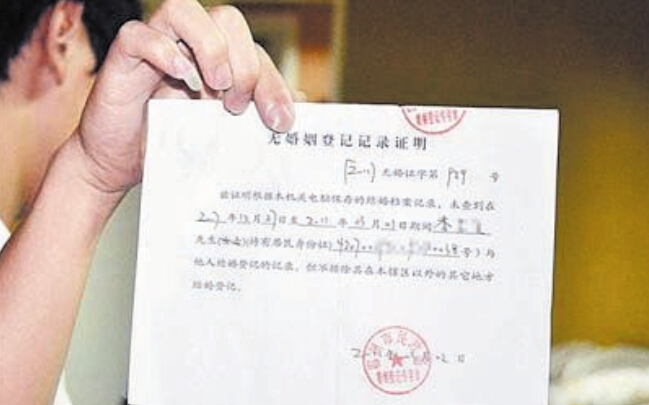 无婚姻登记记录证明
[2011] 无婚证字第 号
兹证明根据本机关电脑保存的结婚档案记录,未查到在
年12月 日至2011年05月 日期间 李
先生(女士)(持有居民身份证) 号)与
他人结婚登记的记录。但不排除其在本辖区以外的其它地方
结婚登记。
婚姻登记专用章
月 日